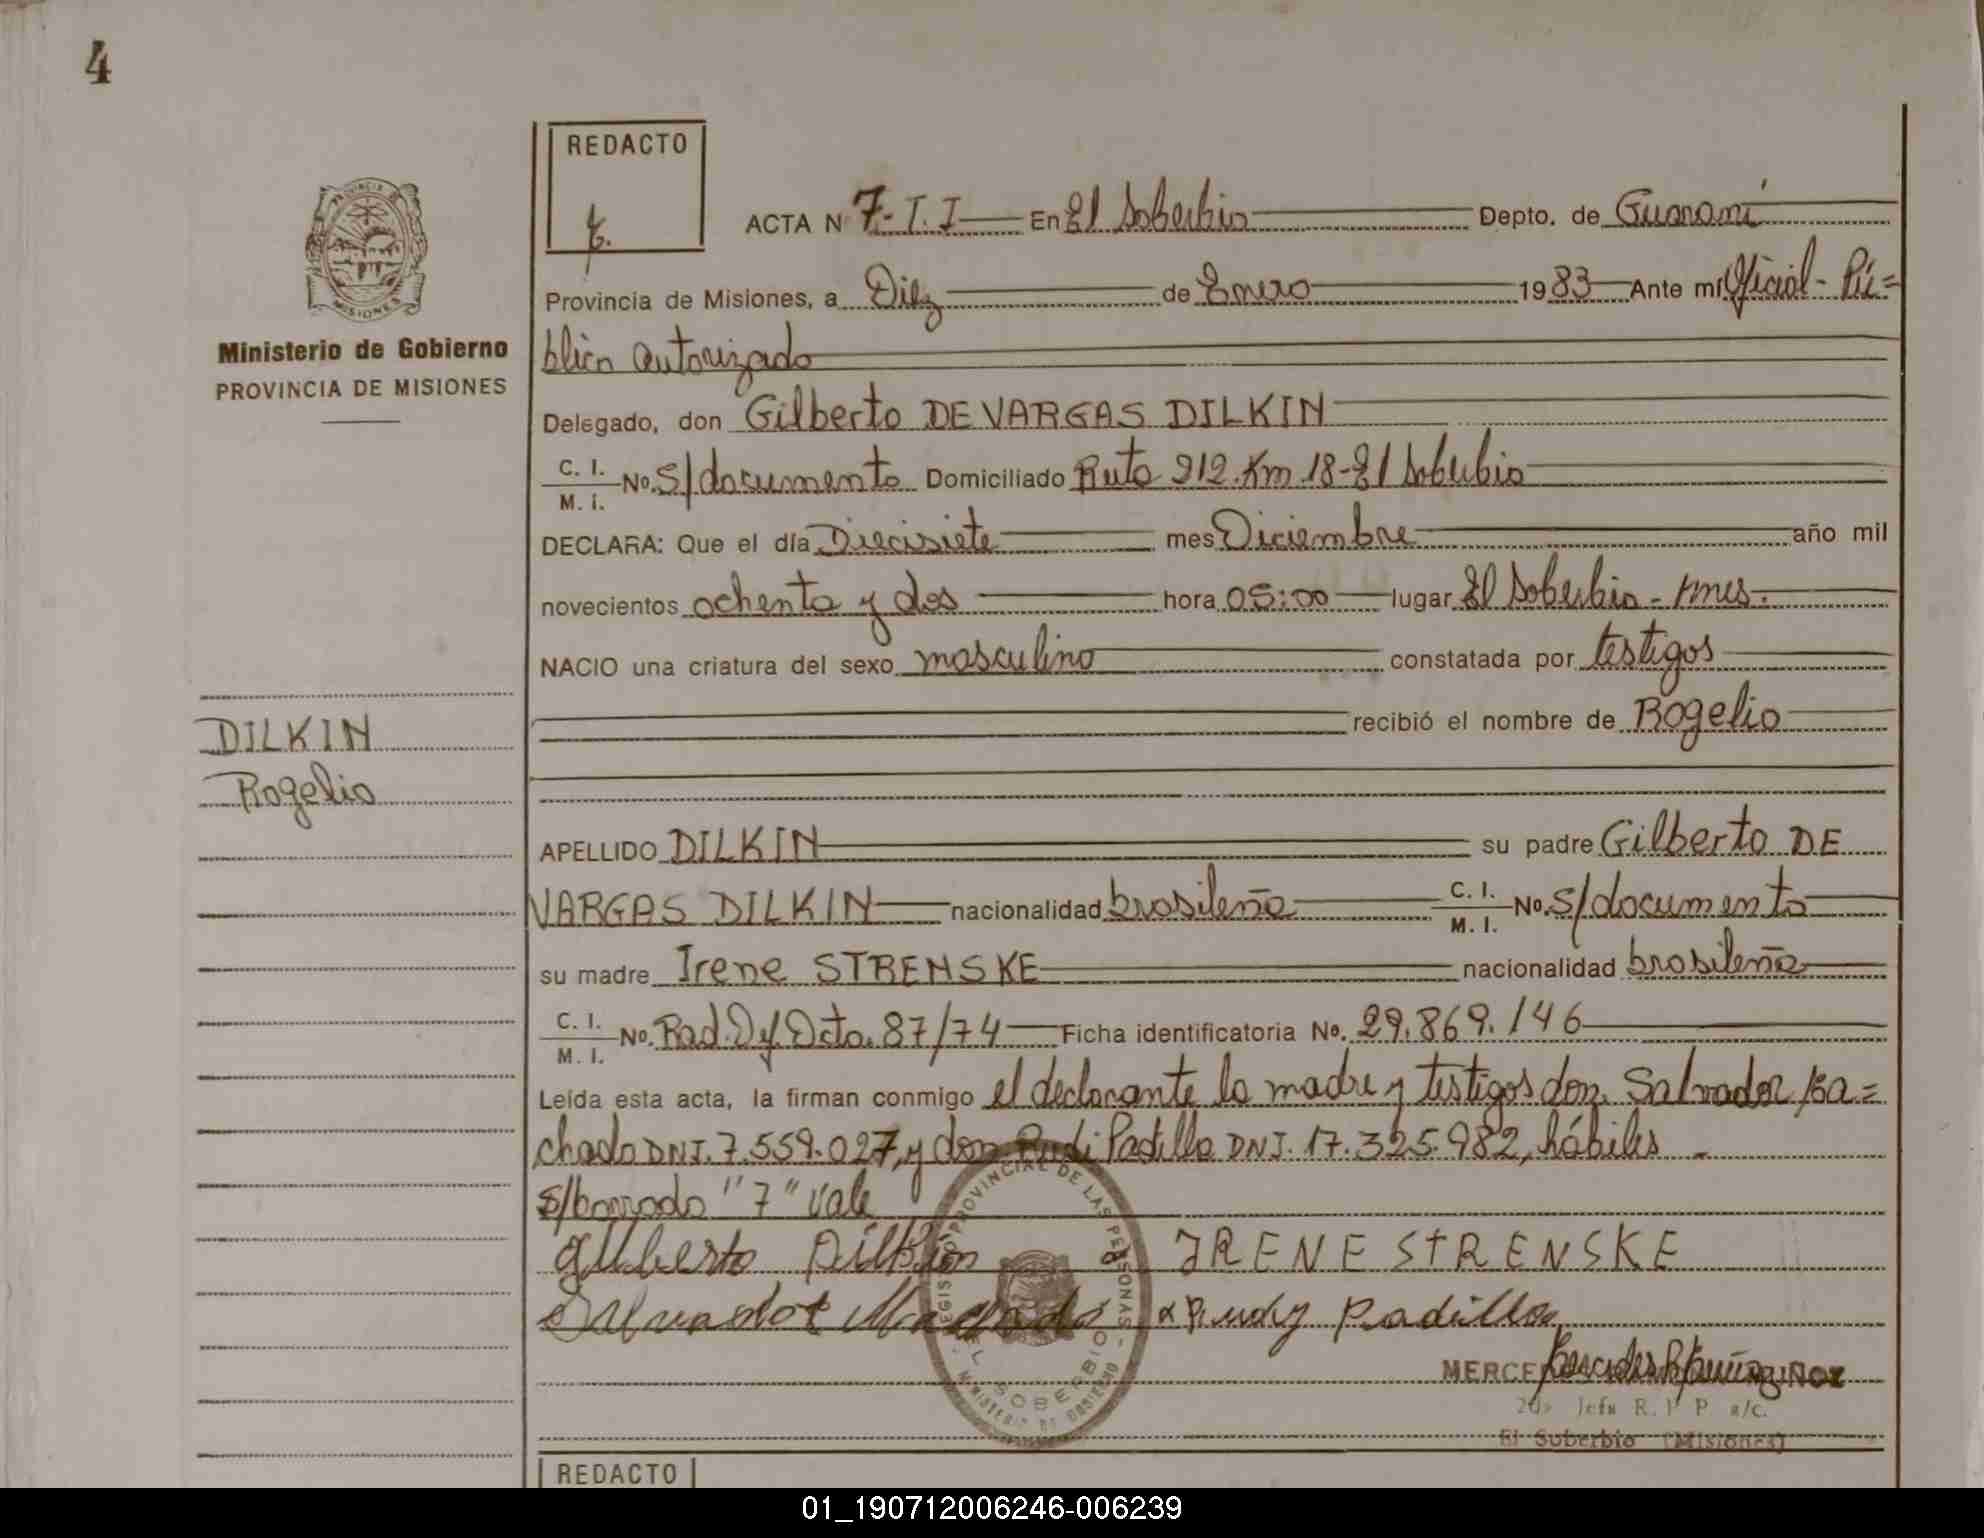 4
REDACTO
ACTA N 7-T. I En El Soberbio Depto. de Guaraní
Provincia de Misiones, a Diez de Enero 1983 Ante mí Oficial- Pú=
blico autorizado
Delegado, don Gilberto DE VARGAS DILKIN
C. I.
M. I. No. S/documento Domiciliado Ruta 212. Km 18-El Soberbio
DECLARA: Que el día Diecisiete mes Diciembre año mil
novecientos ochenta y dos hora 05:00 lugar El Soberbio - Mnes.
NACIO una criatura del sexo masculino constatada por testigos
recibió el nombre de Rogelio
APELLIDO DILKIN su padre Gilberto DE
VARGAS DILKIN nacionalidad brasileña C. I.
M. I. No. S/documento
su madre Irene STRENSKE nacionalidad brasileña
C. I.
M. I. No. Rad. Dcto. 87/74 Ficha identificatoria No. 29.869.146
Leída esta acta, la firman conmigo el declarante la madre y testigos don Salvador
chado DNI. 7.559.027, y don Rudi Padilla DNI. 17.325.982, hábiles -
S/borrado "7" vale
Gilberto Dilkin IRENE STRENSKE
Salvador Machado Rudy Padilla
MERCE
2do Jefa R. P. P a/c.
El Soberbio (Misiones)
REGISTRO PROVINCIAL DE LAS PERSONAS -
EL SOBERBIO
MINISTERIO DE GOBIERNO
PROVINCIA DE
MISIONES
Ministerio de Gobierno
PROVINCIA DE MISIONES
DILKIN
Rogelio
REDACTO
01_190712006246-006239